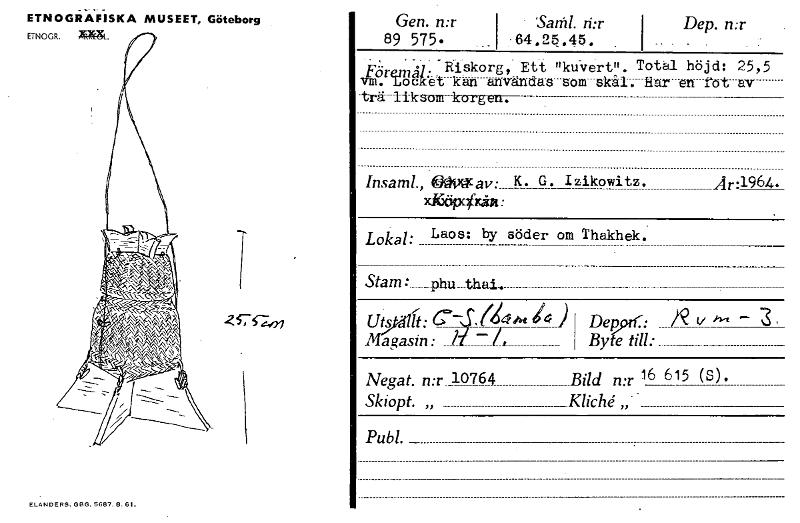 ETNOGRAFISKA MUSEET, Göteborg
ETNOGR.
25,5 cm
ELANDERS, GBG. 5687. 8. 61.
Gen. n:r Saml. n:r Dep. n:r
89 575. 64.25.45.
Föremål: Riskorg, Ett "kuvert". Total höjd: 25,5
vm. Locket kan användas som skål. Har en fot av
trä liksom korgen.
Insaml., Gåva av: K. G. Izikowitz. År:1964.
Köp från:
Lokal: Laos: by söder om Thakhek.
Stam: phu thai.
Utställt: C-S.(bamba) Depon.: Rvm-3.
Magasin: H-1. Byte till:
Negat. n:r 10764 Bild n:r 16 615 (S).
Skiopt. „ Kliché „
Publ.